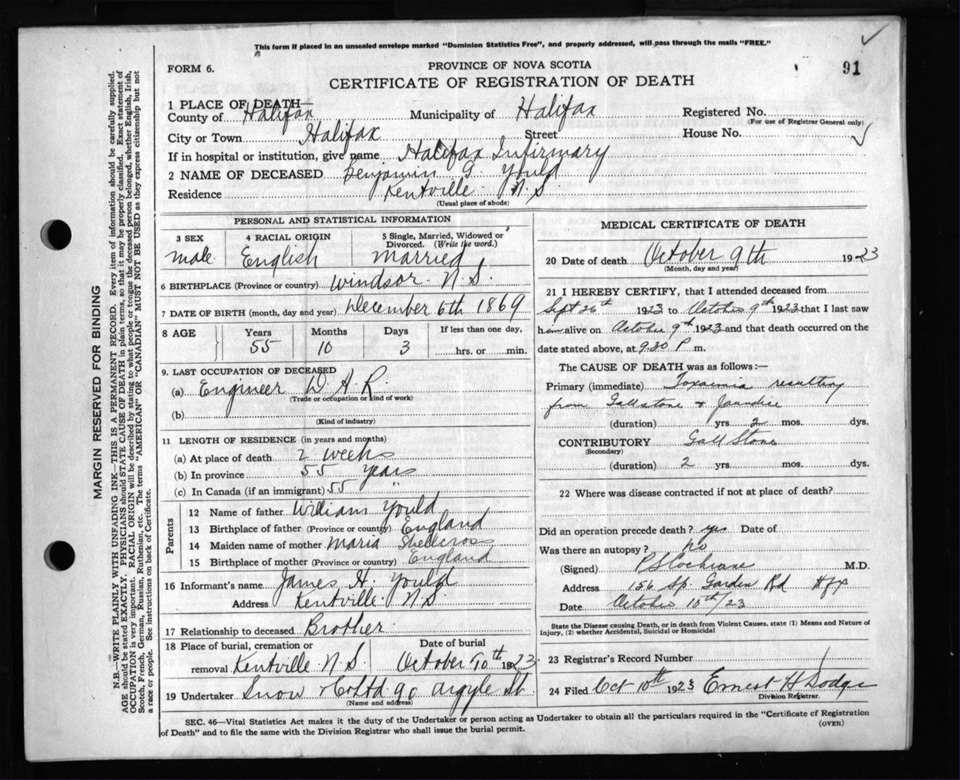 This form if placed in an unsealed envelope marked "Dominion Statistics Free", and properly addressed, will pass through the mails "FREE."
FORM 6.
PROVINCE OF NOVA SCOTIA
91
CERTIFICATE OF REGISTRATION OF DEATH
1 PLACE OF DEATH—
County of Halifax Municipality of Halifax Registered No.
(For use of Registrar General only)
City or Town Halifax Street House No.
If in hospital or institution, give name Halifax Infirmary
2 NAME OF DECEASED Benjamin G. Yould
Residence Kentville N.S.
(Usual place of abode)
PERSONAL AND STATISTICAL INFORMATION
3 SEX 4 RACIAL ORIGIN 5 Single, Married, Widowed or Divorced. (Write the word.)
Male English Married
6 BIRTHPLACE (Province or country) Windsor N.S.
7 DATE OF BIRTH (month, day and year) December 6th 1869
8 AGE Years Months Days If less than one day,
55 10 3 hrs. or min.
9. LAST OCCUPATION OF DECEASED
(a) Engineer D.A.R.
(Trade or occupation or kind of work)
(b)
(Kind of industry)
11 LENGTH OF RESIDENCE (in years and months)
(a) At place of death 2 weeks
(b) In province 55 years
(c) In Canada (if an immigrant) 55 "
Parents
12 Name of father William Yould
13 Birthplace of father (Province or country) England
14 Maiden name of mother Maria Shellcross
15 Birthplace of mother (Province or country) England
16 Informant's name James H. Yould
Address Kentville N.S.
17 Relationship to deceased Brother
18 Place of burial, cremation or removal Kentville N.S. Date of burial October 10th 1923
19 Undertaker Snow & Co Ltd 90 Argyle St.
(Name and address)
MEDICAL CERTIFICATE OF DEATH
20 Date of death October 9th 1923
(Month, day and year)
21 I HEREBY CERTIFY, that I attended deceased from
Sept 26th 1923 to October 9th 1923 that I last saw
him alive on October 9th 1923 and that death occurred on the
date stated above, at 9.30 P m.
The CAUSE OF DEATH was as follows:—
Primary (immediate) Toxaemia resulting
from Gallstone & Jaundice
(duration) yrs. 2 mos. dys.
CONTRIBUTORY Gall Stone
(Secondary)
(duration) 2 yrs. mos. dys.
22 Where was disease contracted if not at place of death?
Did an operation precede death? yes Date of
Was there an autopsy? no
(Signed) P S Cochrane M.D.
Address 156 Sp. Garden Rd Hfx
Date October 10th/23
State the Disease causing Death, or in death from Violent Causes, state (1) Means and Nature of
Injury, (2) whether Accidental, Suicidal or Homicidal
23 Registrar's Record Number
24 Filed Oct 10th 1923 Ernest H Dodge
Division Registrar.
SEC. 46—Vital Statistics Act makes it the duty of the Undertaker or person acting as Undertaker to obtain all the particulars required in the "Certificate of Registration
of Death" and to file the same with the Division Registrar who shall issue the burial permit.
(OVER)
MARGIN RESERVED FOR BINDING
N.B. WRITE PLAINLY WITH UNFADING INK—THIS IS A PERMANENT RECORD. Every item of information should be carefully supplied.
AGE should be stated EXACTLY. PHYSICIANS should STATE CAUSE OF DEATH in plain terms, so that it may be properly classified. Exact statement of
OCCUPATION is very important. RACIAL ORIGIN will be described by stating to what people or tongue the deceased person belonged, whether English, Irish,
Scotch, French, German, Russian, Ruthenian, etc. The terms "AMERICAN" OR "CANADIAN" MUST NOT BE USED as they express citizenship but not
a race or people. See instructions on back of Certificate.